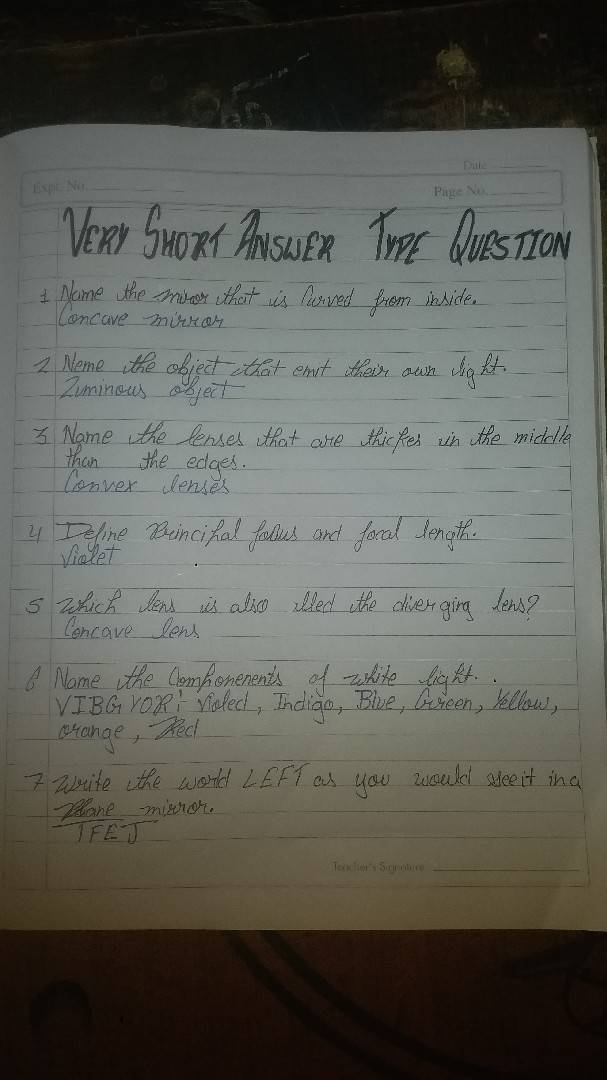 Date
Expt. No.
Page No.
VERY SHORT ANSWER TYPE QUESTION
1 Name the miror that is Curved from inside.
Concave mirror
2 Neme the object that emit their own light.
Luminous object
3 Name the lenses that are thicker in the middle
than the edges.
Convex lenses
4 Define Principal focus and focal length.
Violet
5 Which lens is also the diverging lens?
Concave lens
6 Name the Componenents of white light.
VIBG YOR: Violed, Indigo, Blue, Green, Yellow,
orange, Red
7 Write the world LEFT as you would see it in a
Plane mirror.
TFEJ
Teacher's Signature